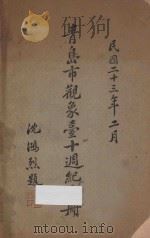 民國二十三年二月
青島市觀象臺十週紀冊
沈鴻烈題